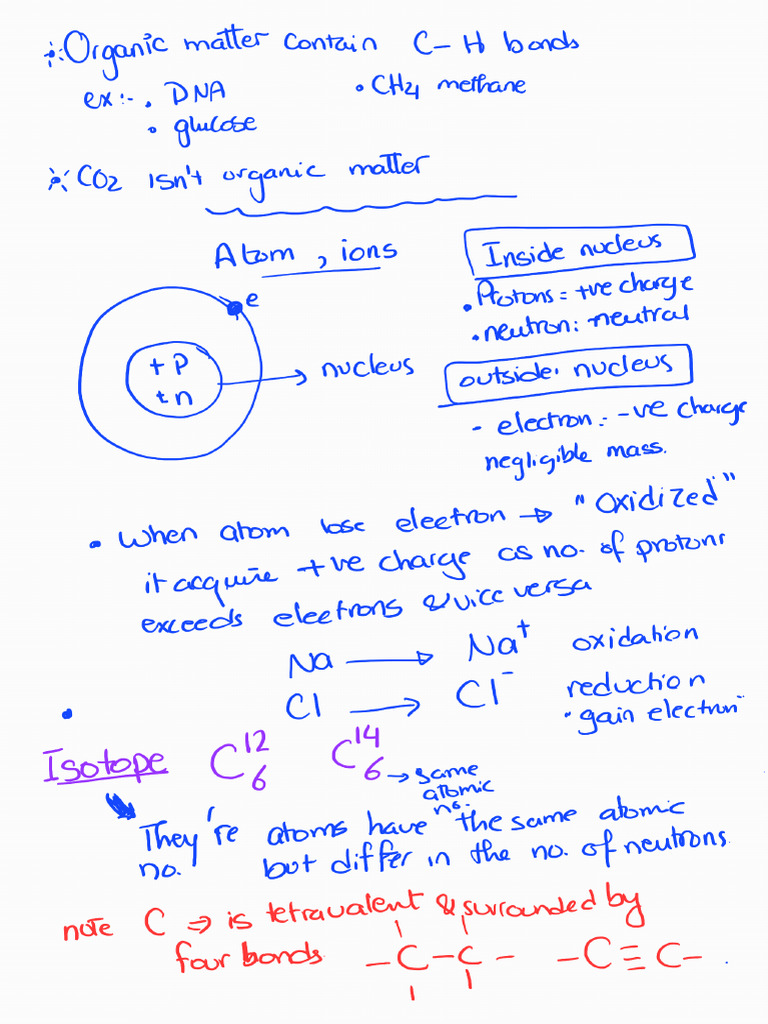 Organic matter contain C-H bonds
ex:- . DNA • CH4 methane
• glucose
CO2 isn't organic matter
Atom, ions
Inside nucleus
• Protons = +ve charge
• neutron: neutral
e
+ P
+ n
nucleus
outside. nucleus
- electron:- -ve charge
negligible mass.
• When atom lose electron → "oxidized"
it acquire +ve charge as no. of protons
exceeds electrons & vice versa
Na → Na⁺ oxidation
• Cl → Cl⁻ reduction
"gain electron"
Isotope C¹²₆ C¹⁴₆ → same
atomic
no.
They're atoms have the same atomic
no. but differ in the no. of neutrons.
note C ⇒ is tetravalent & surrounded by
four bonds -C-C- -C≡C-